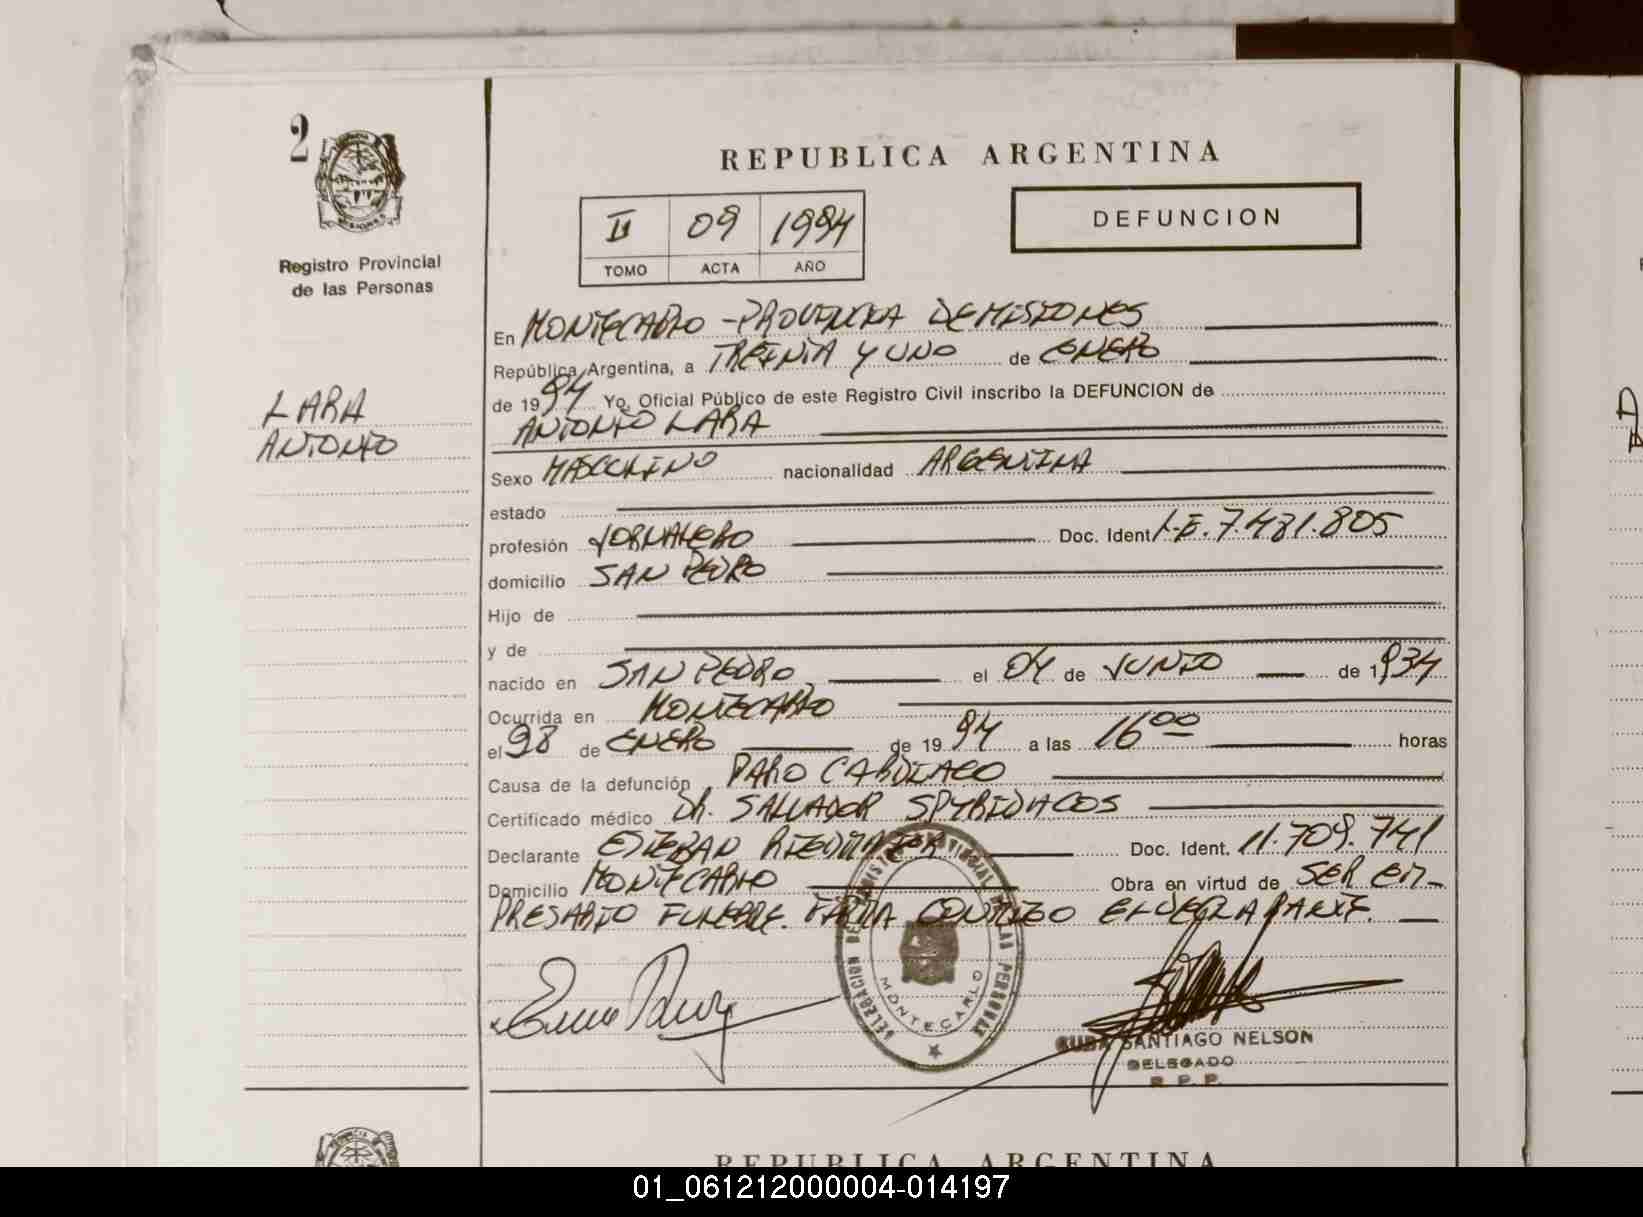 2
REPUBLICA ARGENTINA
II 09 1994
TOMO ACTA AÑO
DEFUNCION
Registro Provincial
de las Personas
LARA
ANTONIO
En MONTECARLO - PROVINCIA DE MISIONES
República Argentina, a TREINTA Y UNO de ENERO
de 1994 Yo, Oficial Público de este Registro Civil inscribo la DEFUNCION de
ANTONIO LARA
Sexo MASCULINO nacionalidad ARGENTINA
estado
profesión JORNALERO Doc. Ident L.E. 7.481.805
domicilio SAN PEDRO
Hijo de
y de
nacido en SAN PEDRO el 04 de JUNIO de 1934
Ocurrida en MONTECARLO
el 98 de ENERO de 1994 a las 16 00 horas
Causa de la defunción PARO CARDIACO
Certificado médico DR. SALVADOR SPYRIDACOS
Declarante ESTEBAN Doc. Ident. 11.709.741
Domicilio MONTECARLO Obra en virtud de SER EM-
PRESARIO FUNEBRE. FIRMA CONMIGO EL DECLARANTE.
DELEGACION DEL REGISTRO PROVINCIAL DE LAS PERSONAS
MONTECARLO
SANTIAGO NELSON
DELEGADO
R. P. P.
REPUBLICA ARGENTINA
01_061212000004-014197